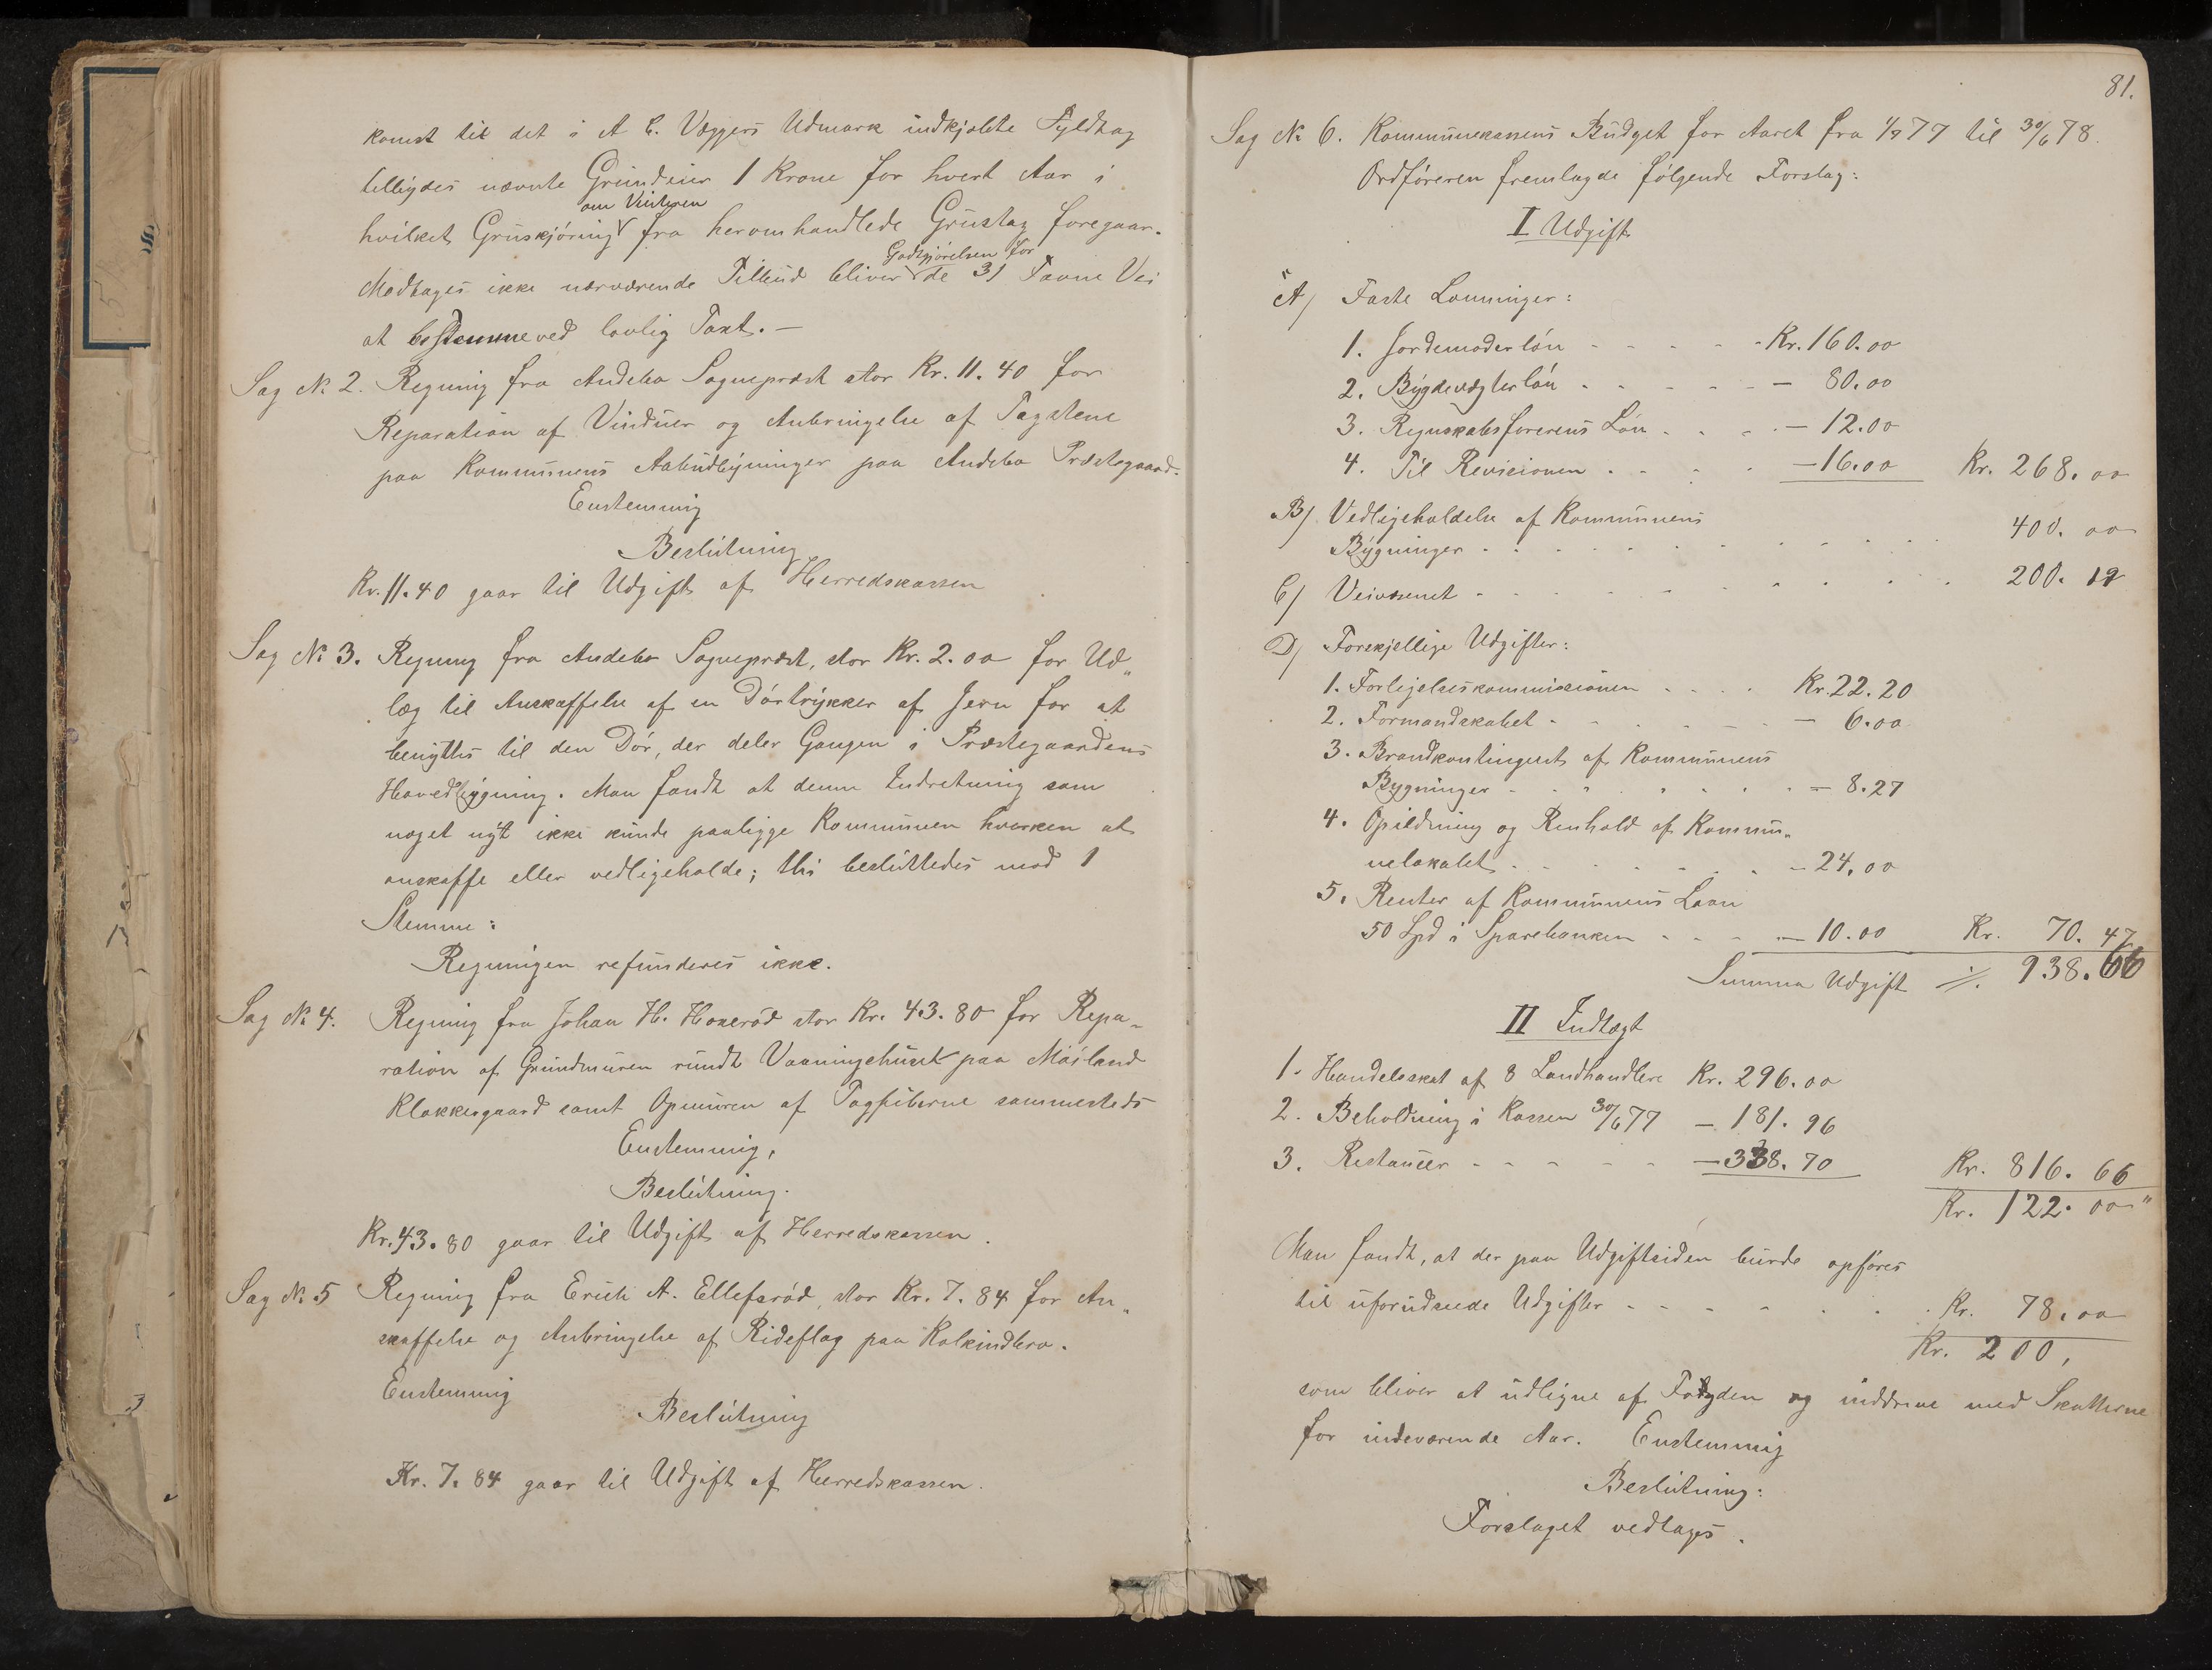 komst til det i A C. Væggers Udmark indkjøbte Fyldtag
tilbydes nævnte Grundeier 1 Krone for hvert Aar i
om Vinteren
hvilket Gruskjøring fra heromhandlede Grustag foregaar.
Godtgjørelsen for
Modtages ikke nærværende Tilbud bliver de 31 Favne Vei
at bestemme ved lovlig Taxt. —
Sag No 2. Regning fra Andebo Sogneprest stor Kr. 11.40 for
Reparation af Vinduer og Anbringelse af Tagstene
paa Kommunens Aabudbygninger paa Andebo Præstegaard.
Enstemmig
Beslutning
Kr. 11.40 gaar til Udgift af Herredskassen
Sag No 3. Regning fra Andebo Sogneprest, stor Kr. 2.00 for Ud„
læg til Anskaffelse af en Dørtrykker af Jern for at
benyttes til den Dør, der deler Gangen i Præstegaardens
Hovedbygning. Man fandt at denne Indretning som
noget nyt ikke kunde paaligge Kommunen hverken at
anskaffe eller vedligeholde; thi besluttedes mod 1
Stemme:
Regningen refunderes ikke.
Sag No 4. Regning fra Johan H. Honerød stor Kr. 43.80 for Repa„
ration af Grundmuren rundt Vaaningshuset paa Møiland
Klokkergaard samt Opmuren af Tagpiberne sammesteds
Enstemmig,
Beslutning.
Kr. 43.80 gaar til Udgift af Herredskassen.
Sag No 5 Regning fra Erich A. Ellefsrød, stor Kr. 7.84 for An„
skaffelse og Anbringelse af Rideflag paa Kolkindbro.
Enstemmig
Beslutning
Kr. 7.84 gaar til Udgift af Herredskassen.
81.
Sag No 6. Kommunekassens Budget for Aaret fra 1/7 77 til 30/6 78.
Ordføreren fremlagde følgende Forslag:
I Udgift
A) Faste Lønninger:
1. Jordemoderløn - - - - - Kr. 160.00
2. Bygdevægterløn - - - - - — 80.00
3. Regnskabsførerens Løn - - - - — 12.00
4. Til Revisionen - - - - — 16.00 Kr. 268.00
B) Vedligeholdelse af Kommunens
Bygninger - - - - - - - - - 400.00
C) Veivæsenet - - - - - - - - - 200.19
D) Forskjellige Udgifter:
1. Forligelseskommissionen - - - Kr. 22.20
2. Formandskabet - - - - - - — 6.00
3. Brandkontingent af Kommunens
Bygninger - - - - - - - — 8.27
4. Opildning og Renhold af Kommu„
nelokalet - - - - - - - — 24.00
5. Renter af Kommunens Laan
50 Spd i Sparebanken - - - — 10.00 Kr. 70.47
Summa Udgift ·/. 938.66
II Indtægt
1. Handelsskat af 8 Landhandlere Kr. 296.00
2. Beholdning i Kassen 30/6 77 — 181.96
3. Restancer - - - - - — 338.70 Kr. 816.66
Kr. 122.00"
Man fandt, at der paa Udgiftsiden burde opføres
til uforudseede Udgifter - - - - - - Kr. 78.00
Kr. 200,
som bliver at udligne af Fogden og inddrive med Skatterne
for indeværende Aar. Enstemmig
Beslutning:
Forslaget vedtages.